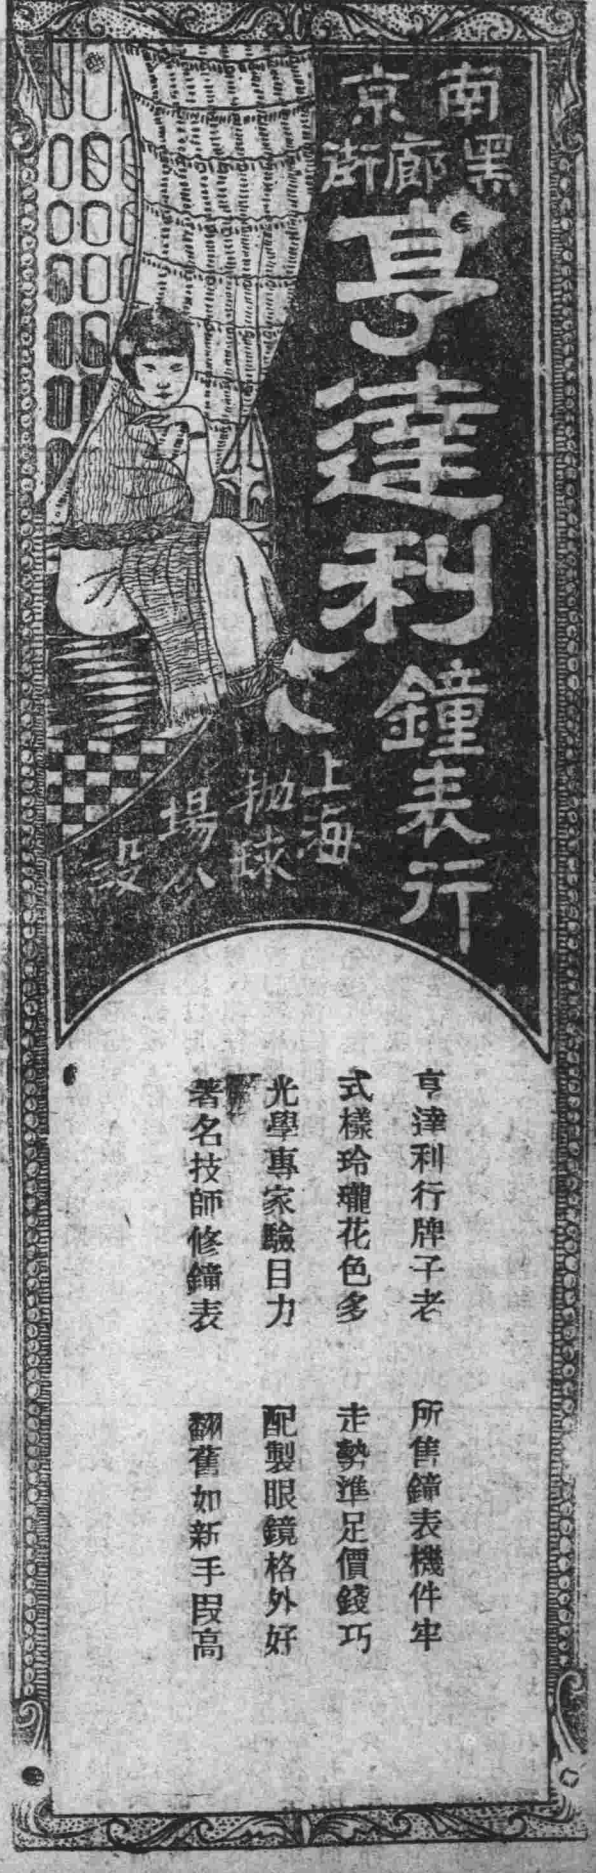 南京
黑廊街
亨達利
鐘表行
上海
抛球
場分
設
亨達利行牌子老　所售鐘表機件牢
式樣玲瓏花色多　走勢準足價錢巧
光學專家驗目力　配製眼鏡格外好
著名技師修鐘表　翻舊如新手段高